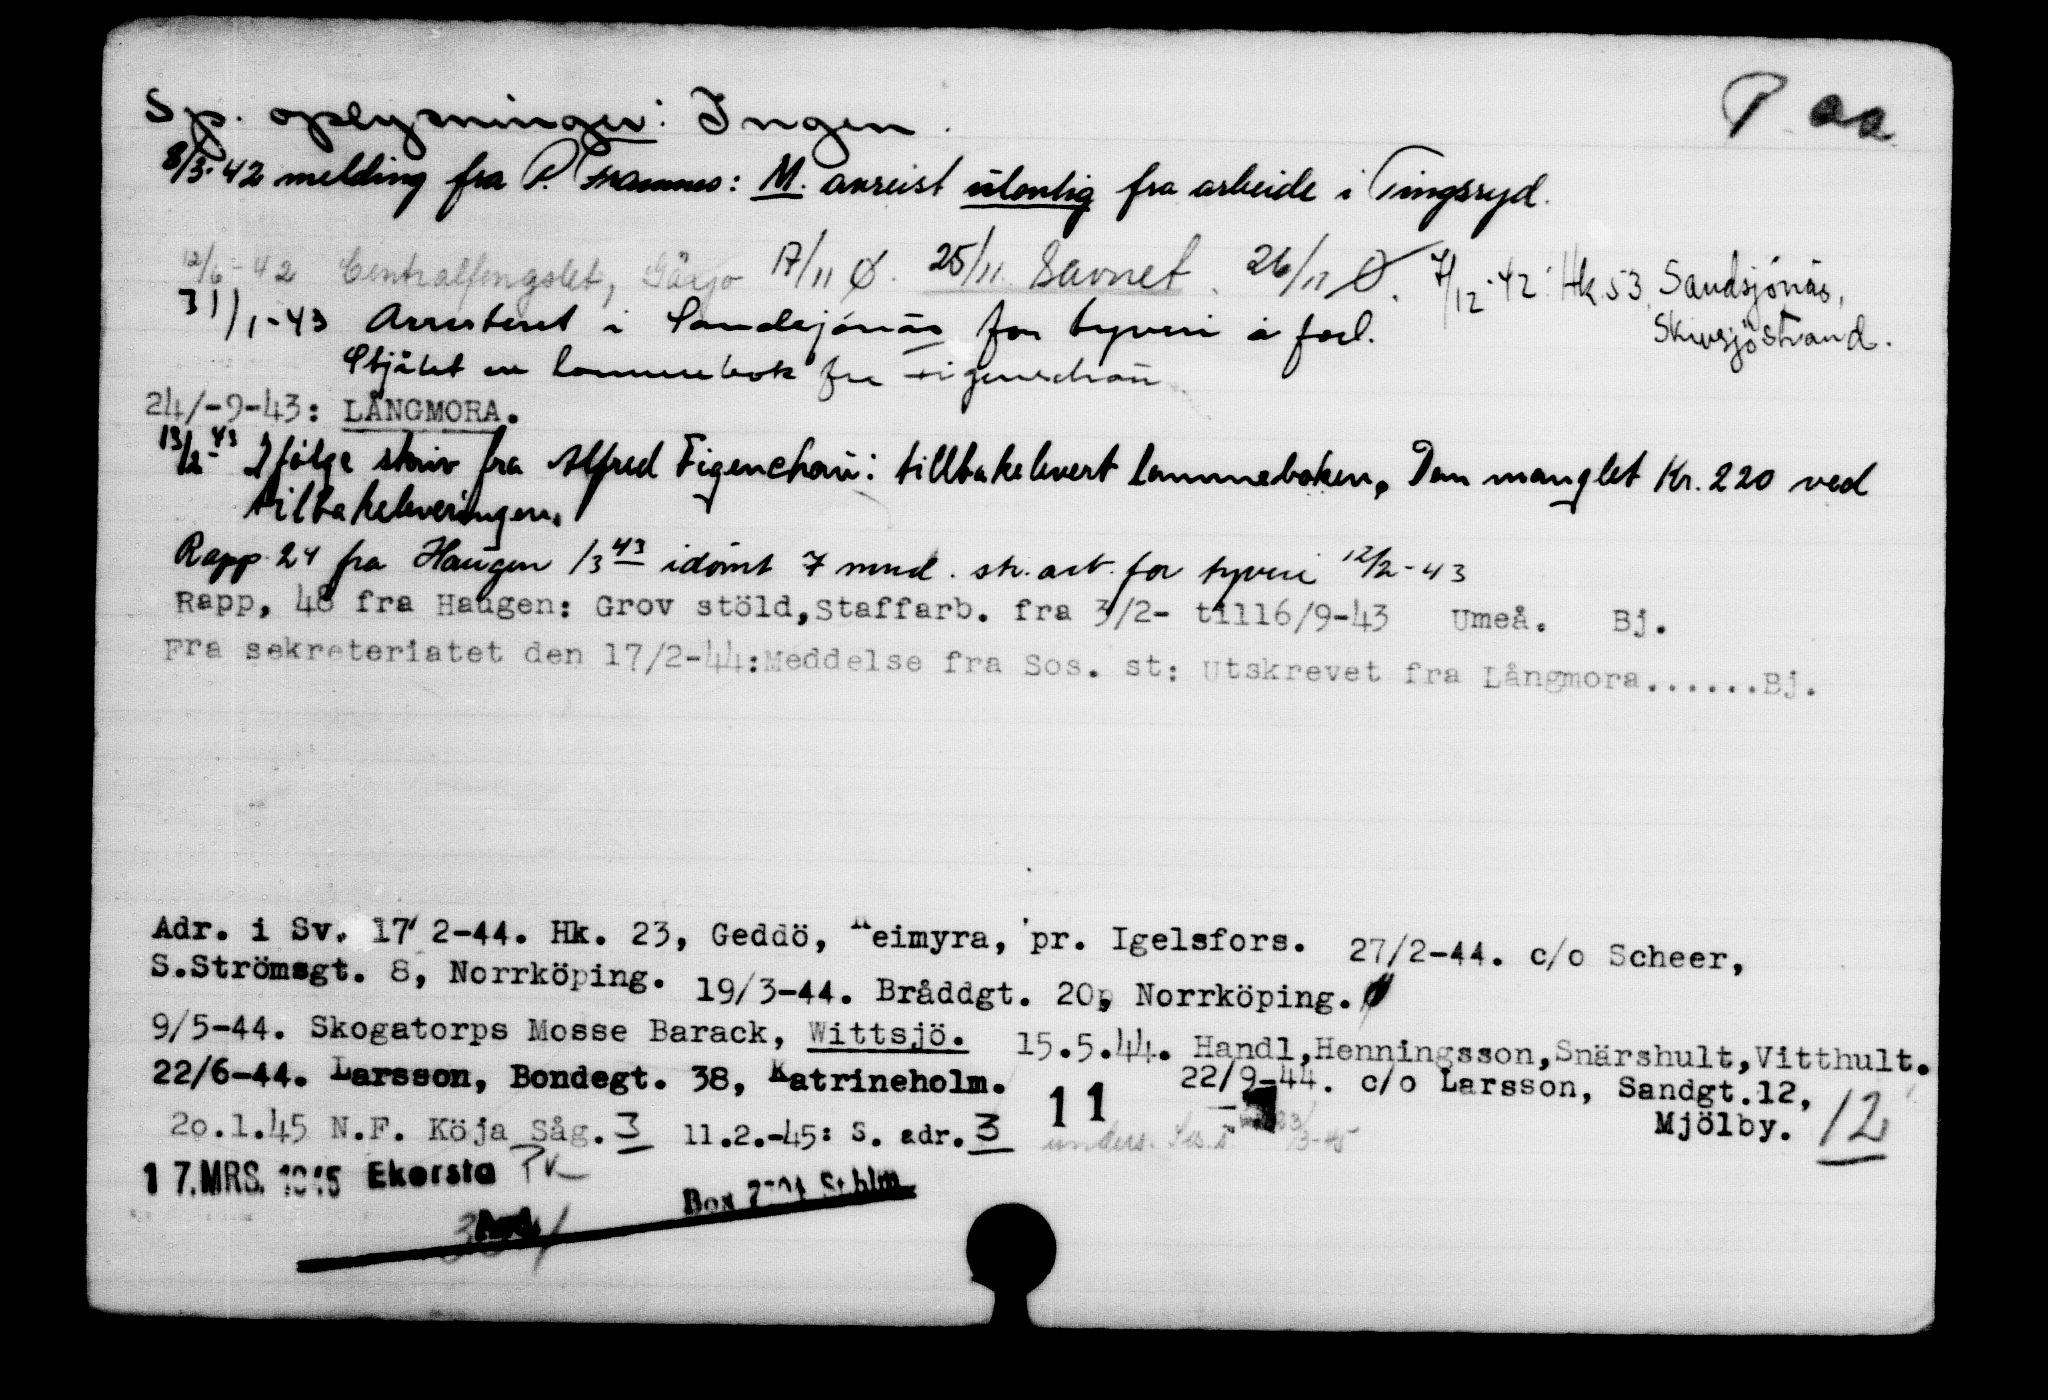 P. aa
Sp. oplysninger: Ingen.
8/3-42 melding fra P. : M. avreist ulovlig fra arbeide i Tingsryd.
12/6-42 Centralfengslet, 17/11 Ø. 25/11. Savnet. 26/11 Ø. 7/12-42: Hk. 53, Sandsjönäs,
Skivsjöstrand.
31/1-43 Arrestert i Sandsjönäs for tyveri å forl.
Stjålet en lommebok fra Figenschau
24/-9-43: LÅNGMORA.
13/2-43 Ifølge skriv fra Alfred Figenchau: tillbakelevert lommeboken, Den manglet Kr. 220 ved
tilbakeleveringen.
Rapp. 24 fra Haugen 1/3 43 idömt 7 mnd. str. arb. for tyveri 12/2-43
Rapp, 48 fra Haugen: Grov stöld,Staffarb. fra 3/2- till16/9-43 Umeå. Bj.
Fra sekreteriatet den 17/2-44:Meddelse fra Sos. st: Utskrevet fra Långmora......Bj.
Adr. i Sv. 17/2-44. Hk. 23, Geddö, Reimyra, pr. Igelsfors. 27/2-44. c/o Scheer,
S.Strömsgt. 8, Norrköping. 19/3-44. Bråddgt. 20, Norrköping. Ø
9/5-44. Skogatorps Mosse Barack, Wittsjö. 15.5.44. Handl,Henningsson,Snärshult,Vitthult.
22/6-44. Larsson, Bondegt. 38, Katrineholm. 11 22/9-44. c/o Larsson, Sandgt.12,
Mjölby. 12
2o.1.45 N.F. Köja Såg. 3 11.2.-45: S. adr. 3
17.MRS. 1945 Ekersta Box Sthlm